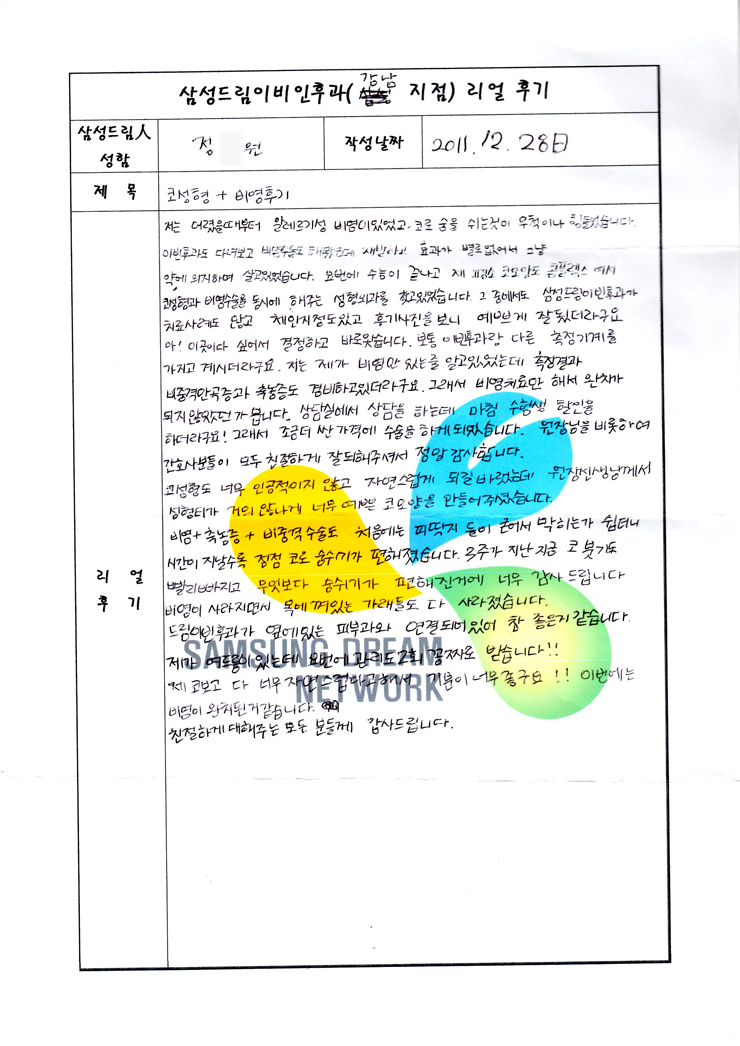 삼성드림이비인후과(강남 지점) 리얼 후기
삼성드림人 성함
정 원
작성날짜
2011. 12. 28日
제 목
코성형 + 비염후기
리 얼 후 기
저는 어렸을때부터 알레르기성 비염이있었고. 코로 숨을 쉬는것이 무척이나 힘들었습니다.
이빈후과도 다녀보고 비염수술도 해봤는데 재발하고 효과가 별로없어서 그냥
약에 의지하며 살고있었습니다. 요번에 수능이 끝나고 제 코모양도 콤플렉스 여서
코성형과 비염수술을 동시에 해주는 성형외과를 찾고있었습니다. 그 중에서도 삼성드림이빈후과가
치료사례도 많고 체인지점도있고 후기사진을 보니 예쁘게 잘됬더라구요
아! 이곳이다 싶어서 결정하고 바로왔습니다. 보통 이빈후과랑 다른 측정기계를
가지고 계시더라구요. 저는 제가 비염만 있는줄 알고있었는데 측정결과
비중격만곡증과 축농증도 겸비하고있더라구요. 그래서 비염치료만 해서 완치가
되지 않았던가 봅니다. 상담실에서 상담을 하는데 마침 수험생 할인을
하더라구요! 그래서 조금더 싼 가격에 수술을 하게 되었습니다. 원장님을 비롯하여
간호사분들이 모두 친절하게 잘되해주셔서 정말 감사합니다.
코성형도 너무 인공적이지 않고 자연스럽게 되길 바랬는데 원장선생님께서
성형티가 거의 안나게 너무 예쁜 코모양을 만들어주셨습니다.
비염 + 축농증 + 비중격수술도 처음에는 피딱지 들이 굳어서 막히는가 싶더니
시간이 지날수록 점점 코로 숨쉬기가 편해졌습니다. 3주가 지난 지금 코 붓기도
빨리빠지고 무엇보다 숨쉬기가 편해진거에 너무 감사드립니다
비염이 사라지면서 목에 껴있는 가래들도 다 사라졌습니다.
드림이빈후과가 옆에있는 피부과와 연결되어있어 참 좋은거 같습니다.
제가 여드름이 있는데 요번에 관리도 2회 공짜로 받습니다!!
제 코보고 다 너무 자연스럽다고해서 기분이 너무 좋구요!! 이번에는
비염이 완치된거같습니다.
친절하게 대해주는 모든 분들께 감사드립니다.
SAMSUNG DREAM
NETWORK